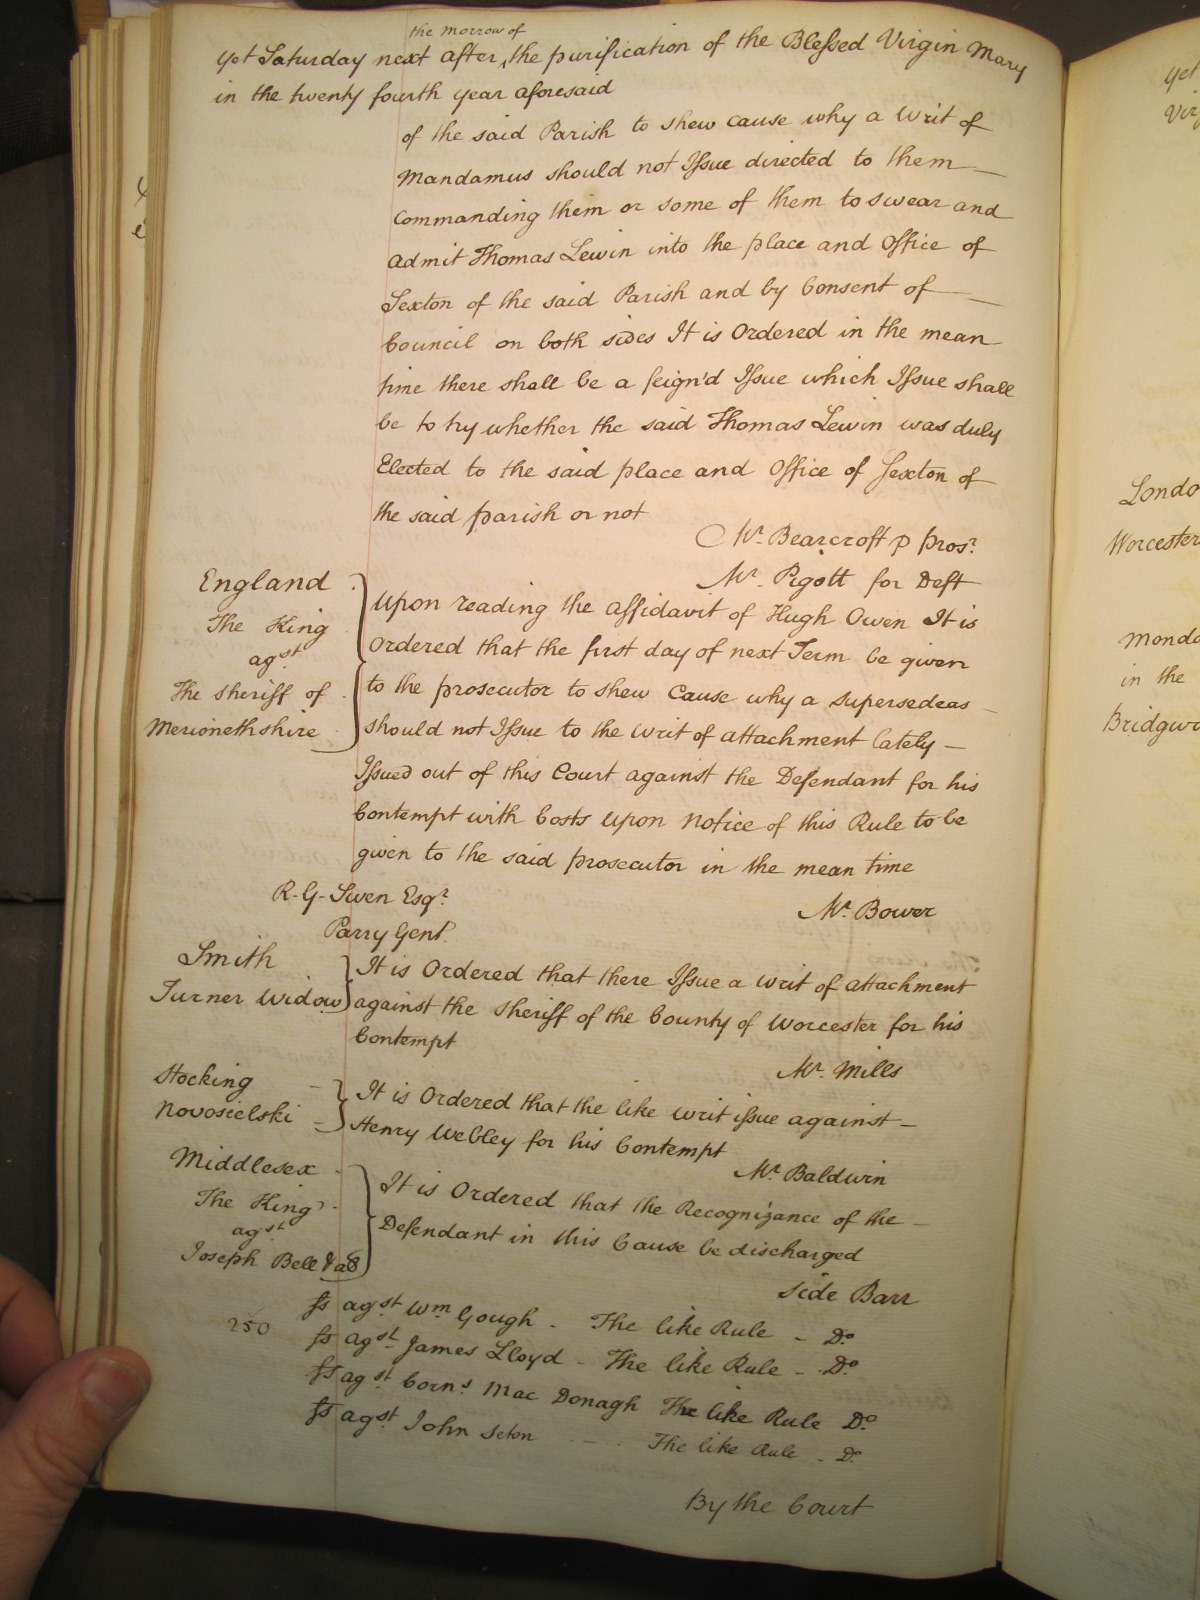 the morrow of
yet Saturday next after ‸ the purification of the Blessed Virgin Mary
in the twenty fourth year aforesaid
of the said Parish to shew cause why a Writ of
Mandamus should not Issue directed to them
Commanding them or some of them to swear and
admit Thomas Lewin into the place and Office of
Sexton of the said Parish and by Consent of
Council on both sides It is Ordered in the mean
time there shall be a feign'd Issue which Issue shall
be to try whether the said Thomas Lewin was duly
Elected to the said place and Office of Sexton of
the said parish or not
Mr. Bearcroft p pros.r
Mr. Pigott for Deft
England
The King
agst
The sheriff of
Merionethshire
Upon reading the affidavit of Hugh Owen It is
Ordered that the first day of next Term be given
to the prosecutor to shew Cause why a supersedeas
should not Issue to the Writ of attachment lately
Issued out of this Court against the Defendant for his
Contempt with Costs upon Notice of this Rule to be
given to the said prosecutor in the mean time
R-G-Owen Esqr.
Parry Gent.
Mr. Bower
Smith
Turner Widow
It is Ordered that there Issue a writ of attachment
against the sheriff of the County of Worcester for his
Contempt
Mr. Mills
Stocking
Novosielski
It is Ordered that the like writ issue against
Henry Webley for his Contempt
Mr. Baldwin
Middlesex
The King
agst
Joseph Bell & als
It is Ordered that the Recognizance of the
Defendant in this Cause be discharged
side Barr
250
ss agst Wm Gough - The like Rule - Do.
ss agst James Lloyd - The like Rule - Do.
ss agst Corns Mac Donagh The like Rule Do.
ss agst John Seton - The like Rule - Do.
By the Court
yet
Vir
Londo
Worcester
Monda
in the
Bridgwa